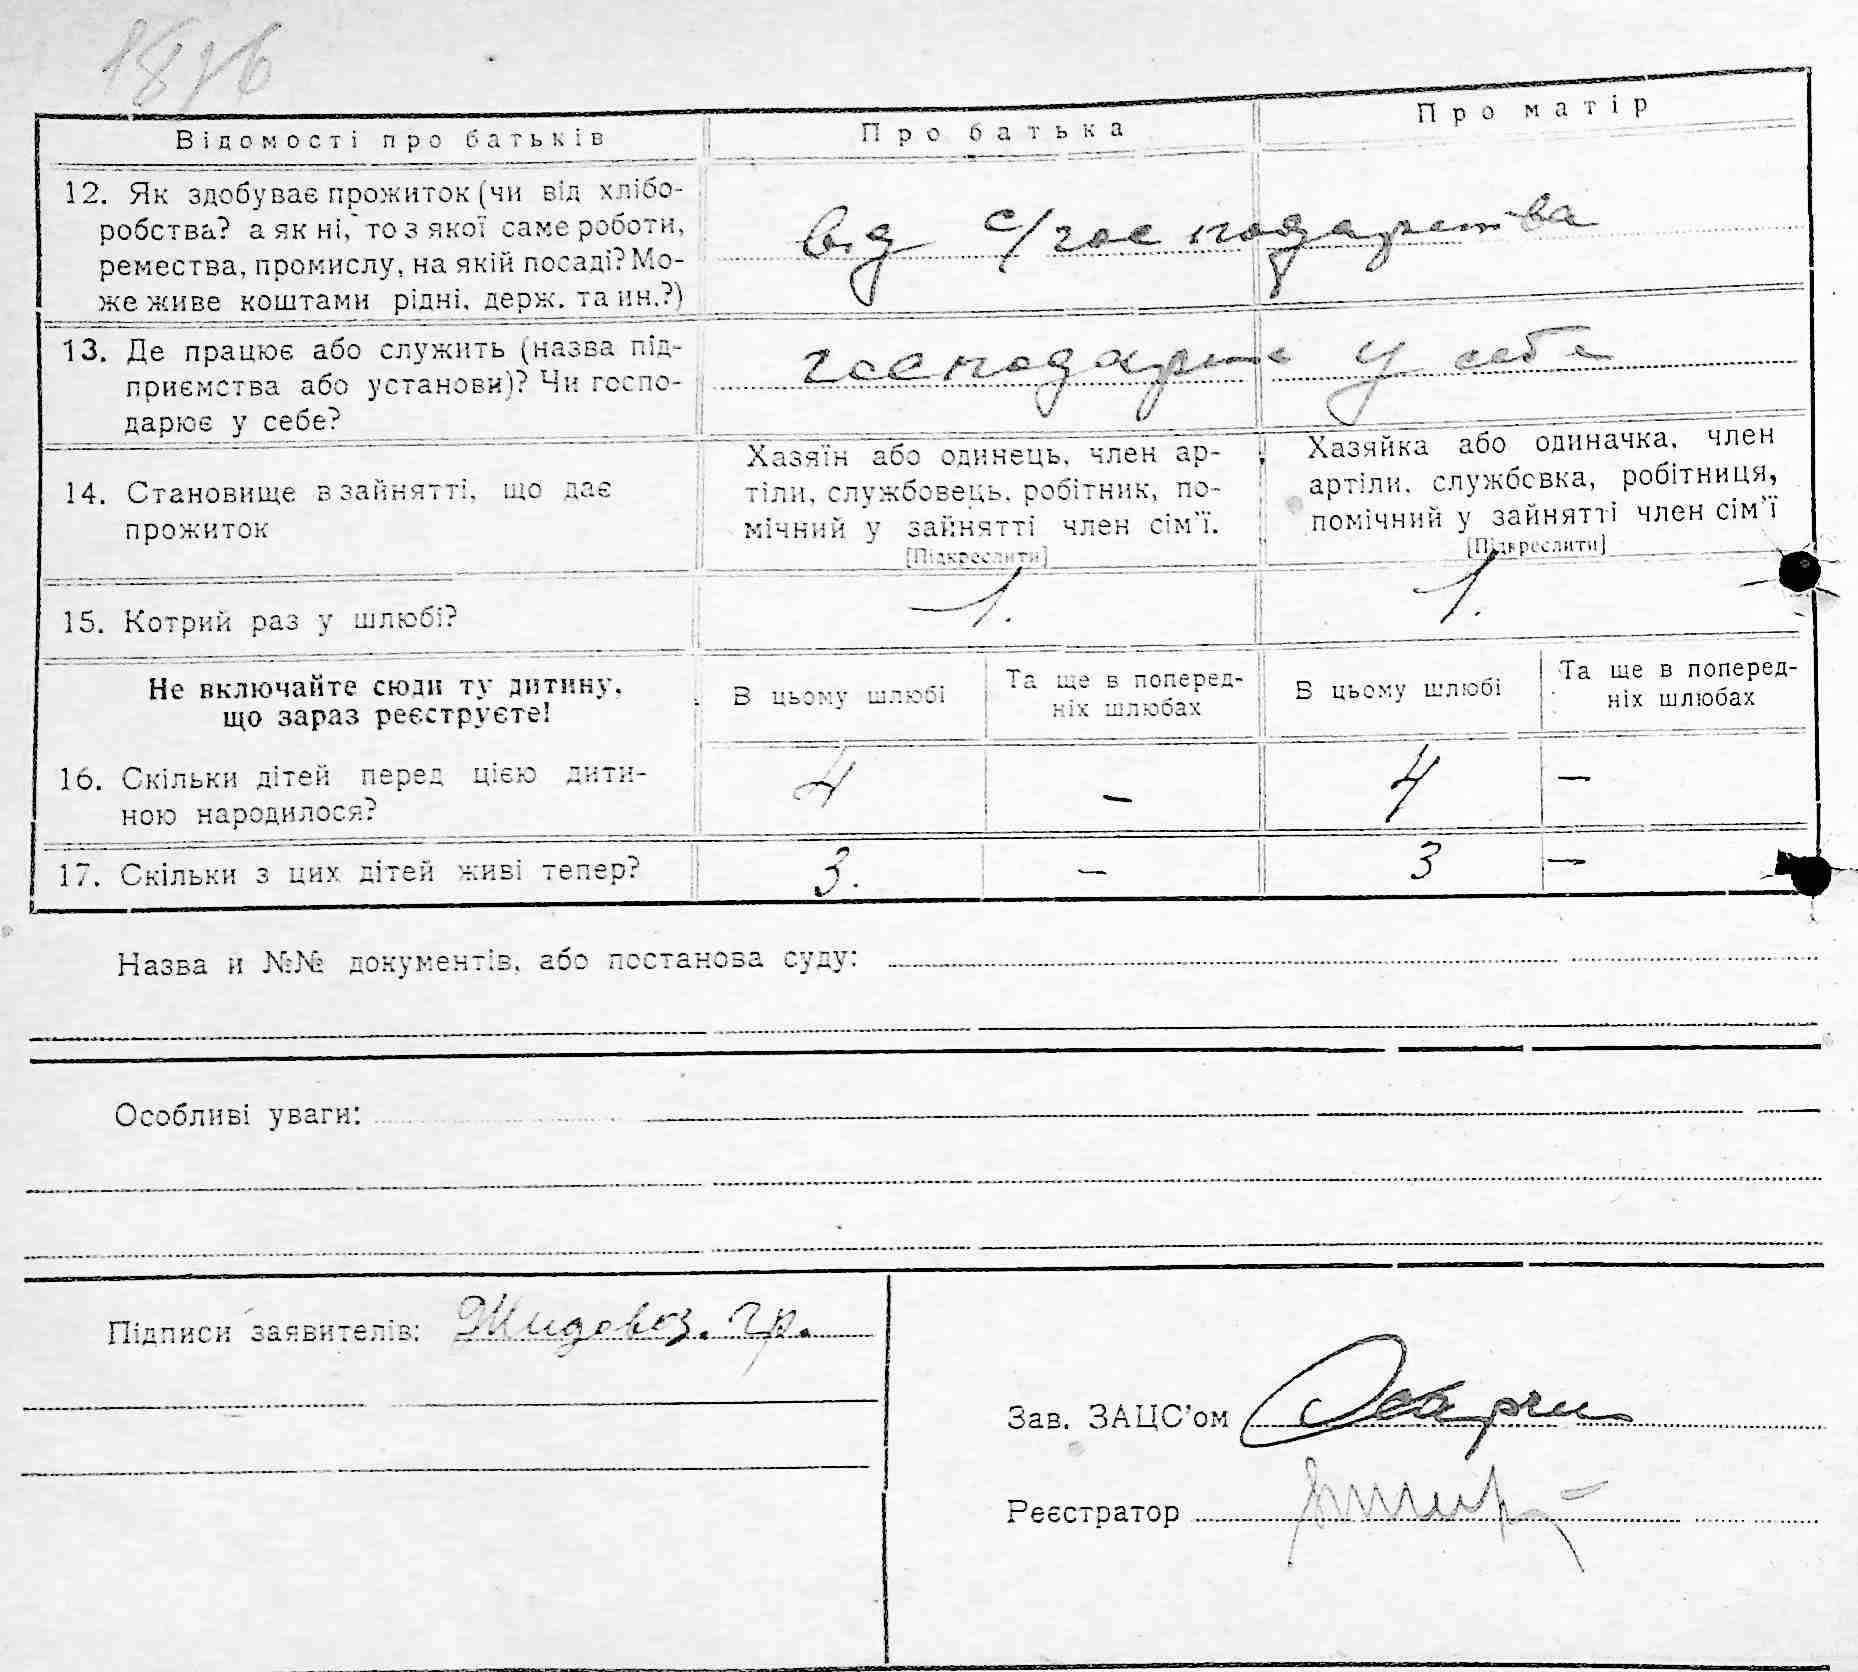 1876
Відомості про батьків
Про батька
Про матір
12. Як здобуває прожиток (чи від хлібо-
робства? а як ні, то з якої саме роботи,
ремества, промислу, на якій посаді? Мо-
же живе коштами рідні, держ. та ин.?)
від с/господарства
13. Де працює або служить (назва під-
приємства або установи)? Чи госпо-
дарює у себе?
господарює у себе
14. Становище в зайнятті, що дає
прожиток
Хазяїн або одинець, член ар-
тіли, службовець, робітник, по-
мічний у зайнятті член сім'ї.
[Підкреслити]
Хазяйка або одиначка, член
артіли, службовка, робітниця,
помічний у зайнятті член сім'ї
[Підкреслити]
15. Котрий раз у шлюбі?
1.
1.
Не включайте сюди ту дитину,
що зараз реєструєте!
В цьому шлюбі
Та ще в поперед-
ніх шлюбах
В цьому шлюбі
Та ще в поперед-
ніх шлюбах
16. Скільки дітей перед цією дити-
ною народилося?
4
–
4
–
17. Скільки з цих дітей живі тепер?
3.
–
3
–
Назва и №№ документів, або постанова суду:
Особливі уваги:
Підписи заявителів: Жидовоз. гр.
Зав. ЗАЦС'ом
Реєстратор